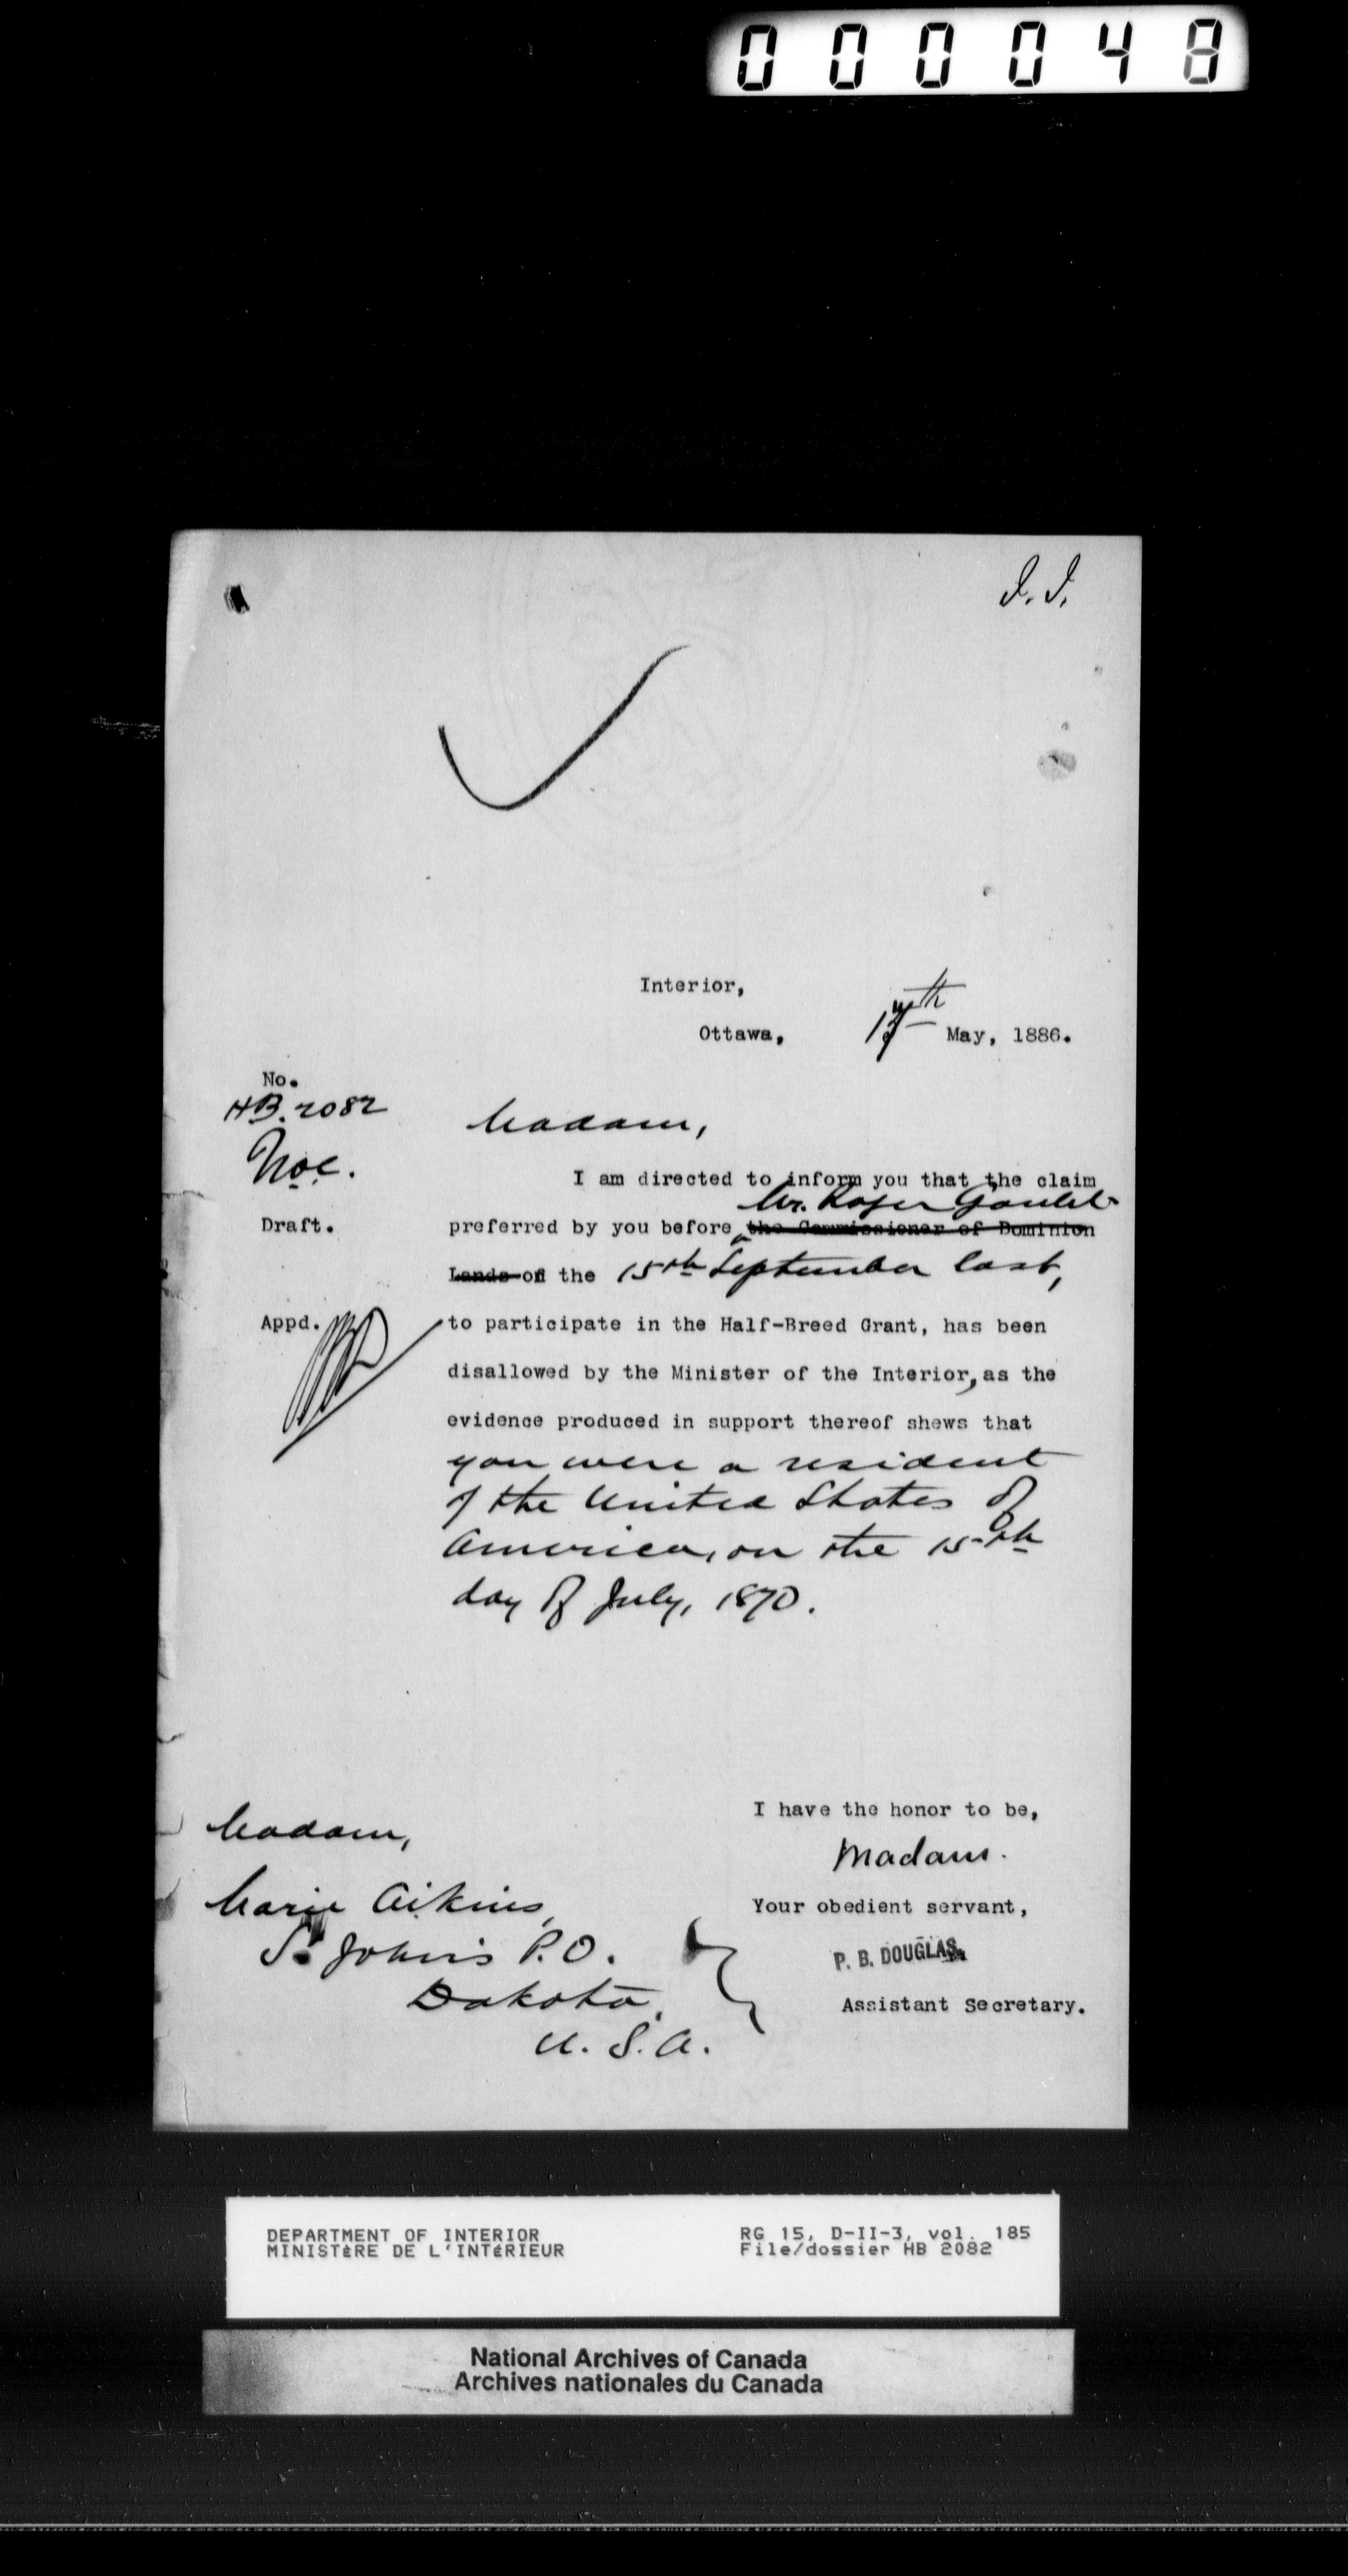 000048
I.I.
Interior,
Ottawa, 17th May, 1886.
No.
HB. 2082
Madam,
I am directed to inform you that the claim
Mr. Roger Goulet
preferred by you before the Commissioner of Dominion
Draft.
Lands on the 15th September last,
Appd.
to participate in the Half-Breed Grant, has been
disallowed by the Minister of the Interior, as the
evidence produced in support thereof shews that
you were a resident
of the United States of
America, on the 15th
day of July, 1870.
I have the honor to be,
Madam.
Your obedient servant,
P. B. DOUGLAS,
Assistant Secretary.
Madam,
Marie Aikins,
St John's P.O.
Dakota,
U. S. A.
DEPARTMENT OF INTERIOR
MINISTèRE DE L'INTéRIEUR
RG 15, D-II-3, vol. 185
File/dossier HB 2082
National Archives of Canada
Archives nationales du Canada